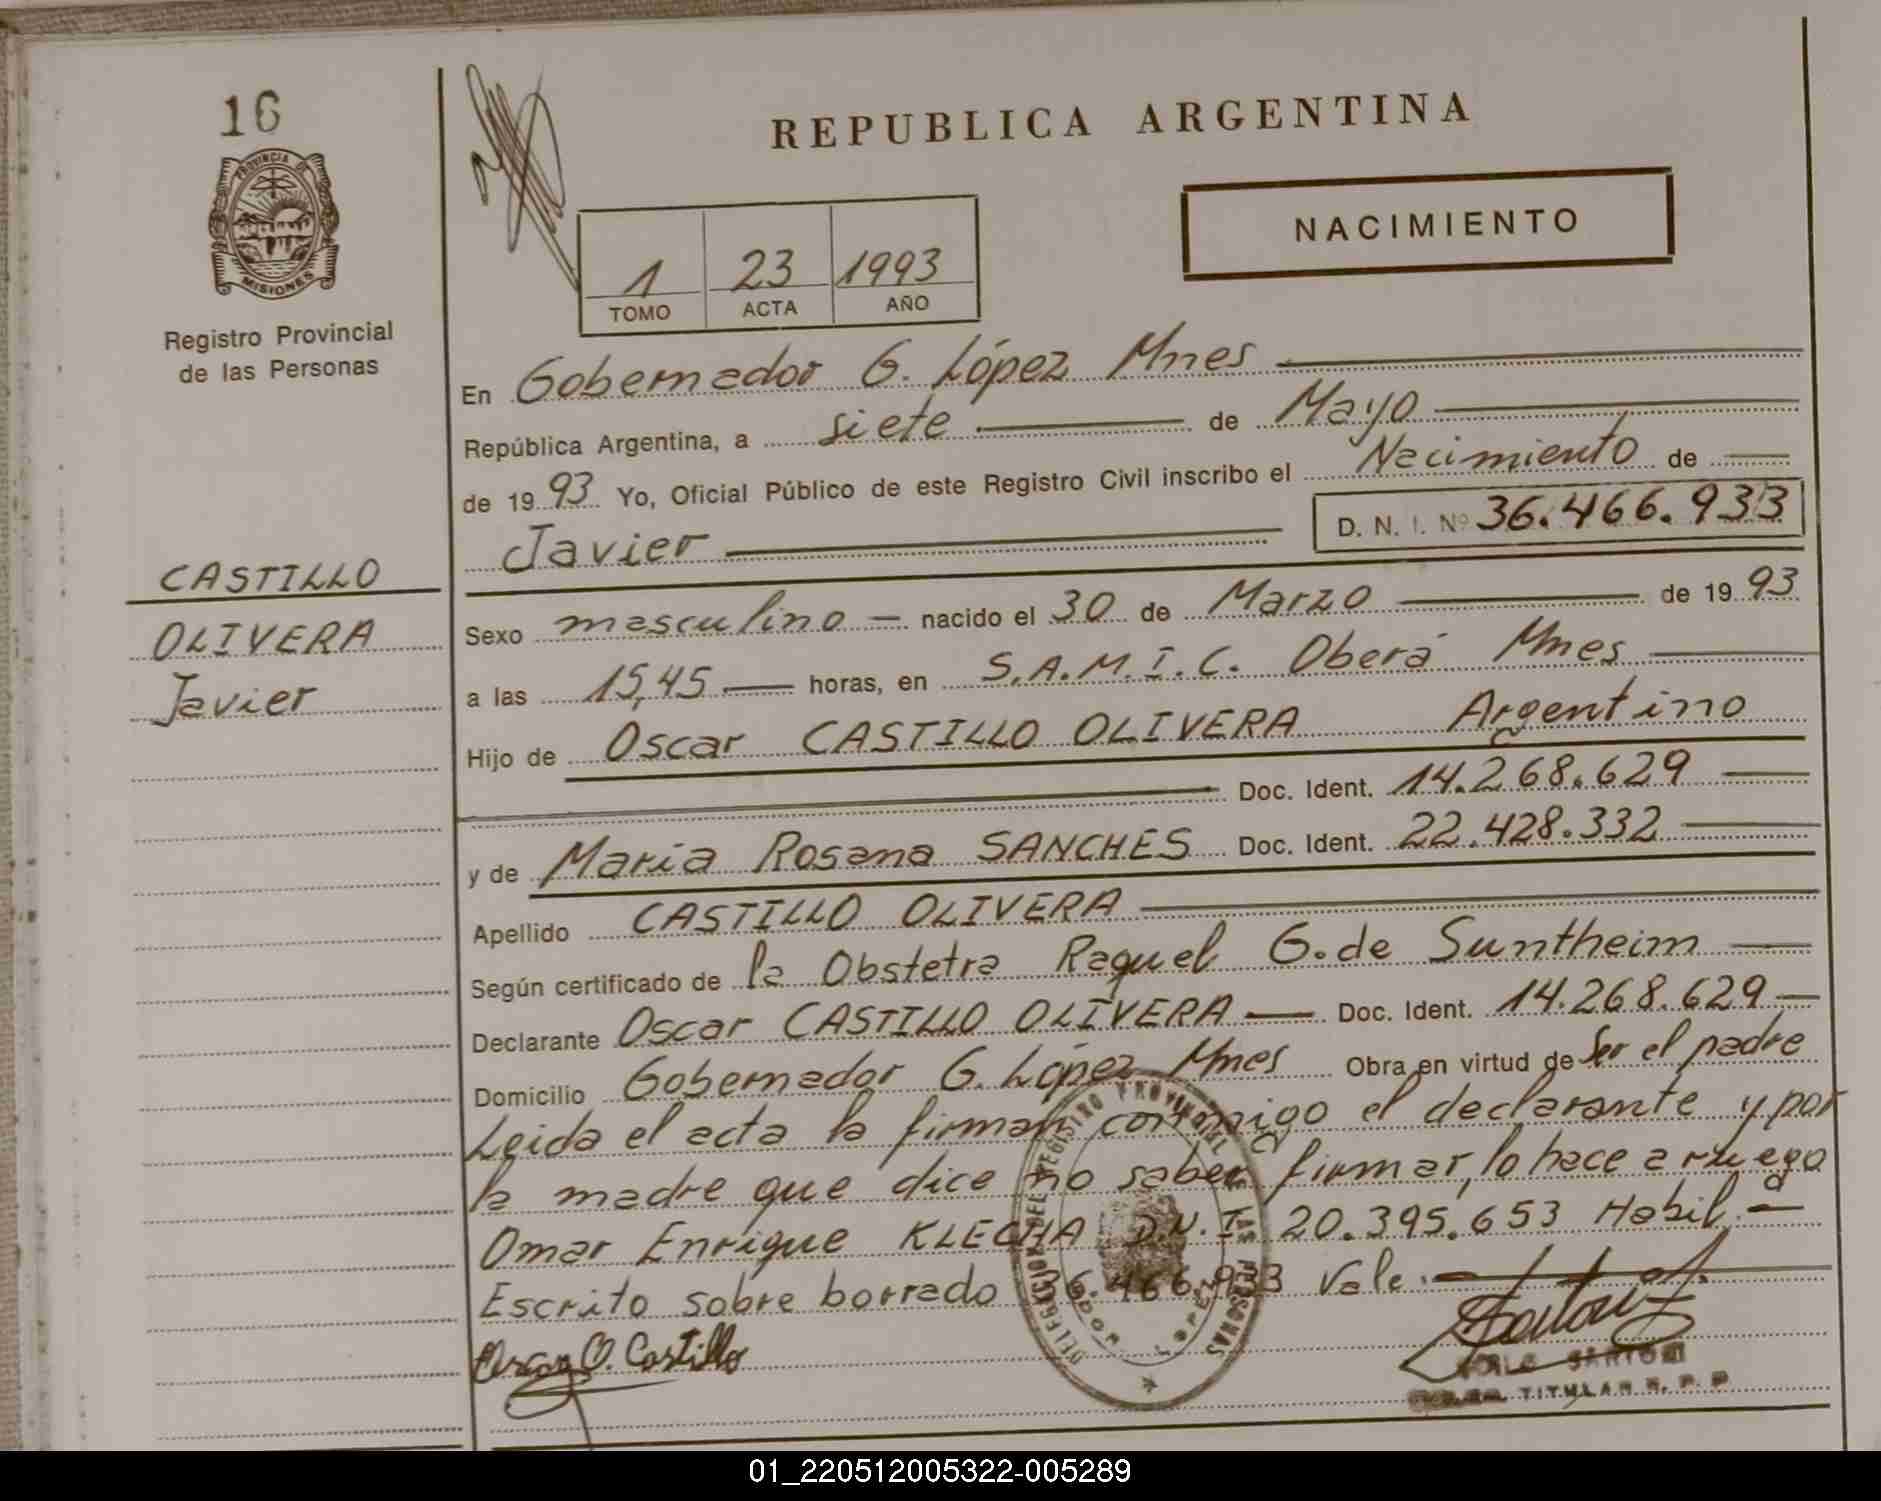 16
PROVINCIA DE
MISIONES
Registro Provincial
de las Personas
CASTILLO
OLIVERA
Javier
REPUBLICA ARGENTINA
NACIMIENTO
1 23 1993
TOMO ACTA AÑO
En Gobernador G. López Mnes
República Argentina, a siete de Mayo
de 1993 Yo, Oficial Público de este Registro Civil inscribo el Nacimiento de
Javier D. N. I. Nº 36.466.933
Sexo masculino nacido el 30 de Marzo de 1993
a las 15,45 horas, en S.A.M.I.C. Oberá Mnes
Hijo de Oscar CASTILLO OLIVERA Argentino
Doc. Ident. 14.268.629
y de Maria Rosana SANCHES Doc. Ident. 22.428.332
Apellido CASTILLO OLIVERA
Según certificado de la Obstetra Raquel G. de Suntheim
Declarante Oscar CASTILLO OLIVERA Doc. Ident. 14.268.629
Domicilio Gobernador G. López Mnes Obra en virtud de Ser el padre
Leida el acta la firman conmigo el declarante y por
la madre que dice no saber firmar, lo hace a ruego
Omar Enrique KLECHA D.N.I. 20.395.653 Habil.
Escrito sobre borrado 36.466.933 Vale.
Oscar O. Castillo
DELEGACION DEL REGISTRO PROVINCIAL DE LAS PERSONAS
LOPEZ
SARTORI
TITULAR R. P. P.
01_220512005322-005289